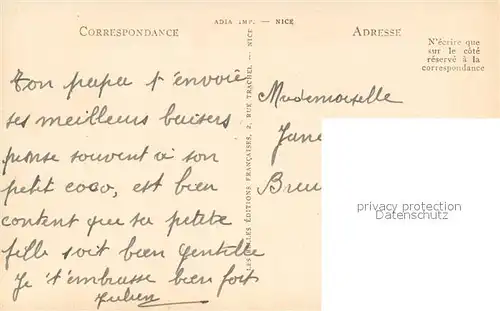 ADIA IMP. — NICE
CORRESPONDANCE
ADRESSE
N'écrire que
sur le côté
réservé à la
correspondance
Ton papa t'envoie
ses meilleurs baisers
pense souvent à son
petit coco, est bien
content que sa petite
fille soit bien gentille
Je t'embrasse bien fort
Julien
LES BELLES ÉDITIONS FRANÇAISES, 2, RUE TRACHEL — NICE
Mademoiselle
privacy protection
Datenschutz